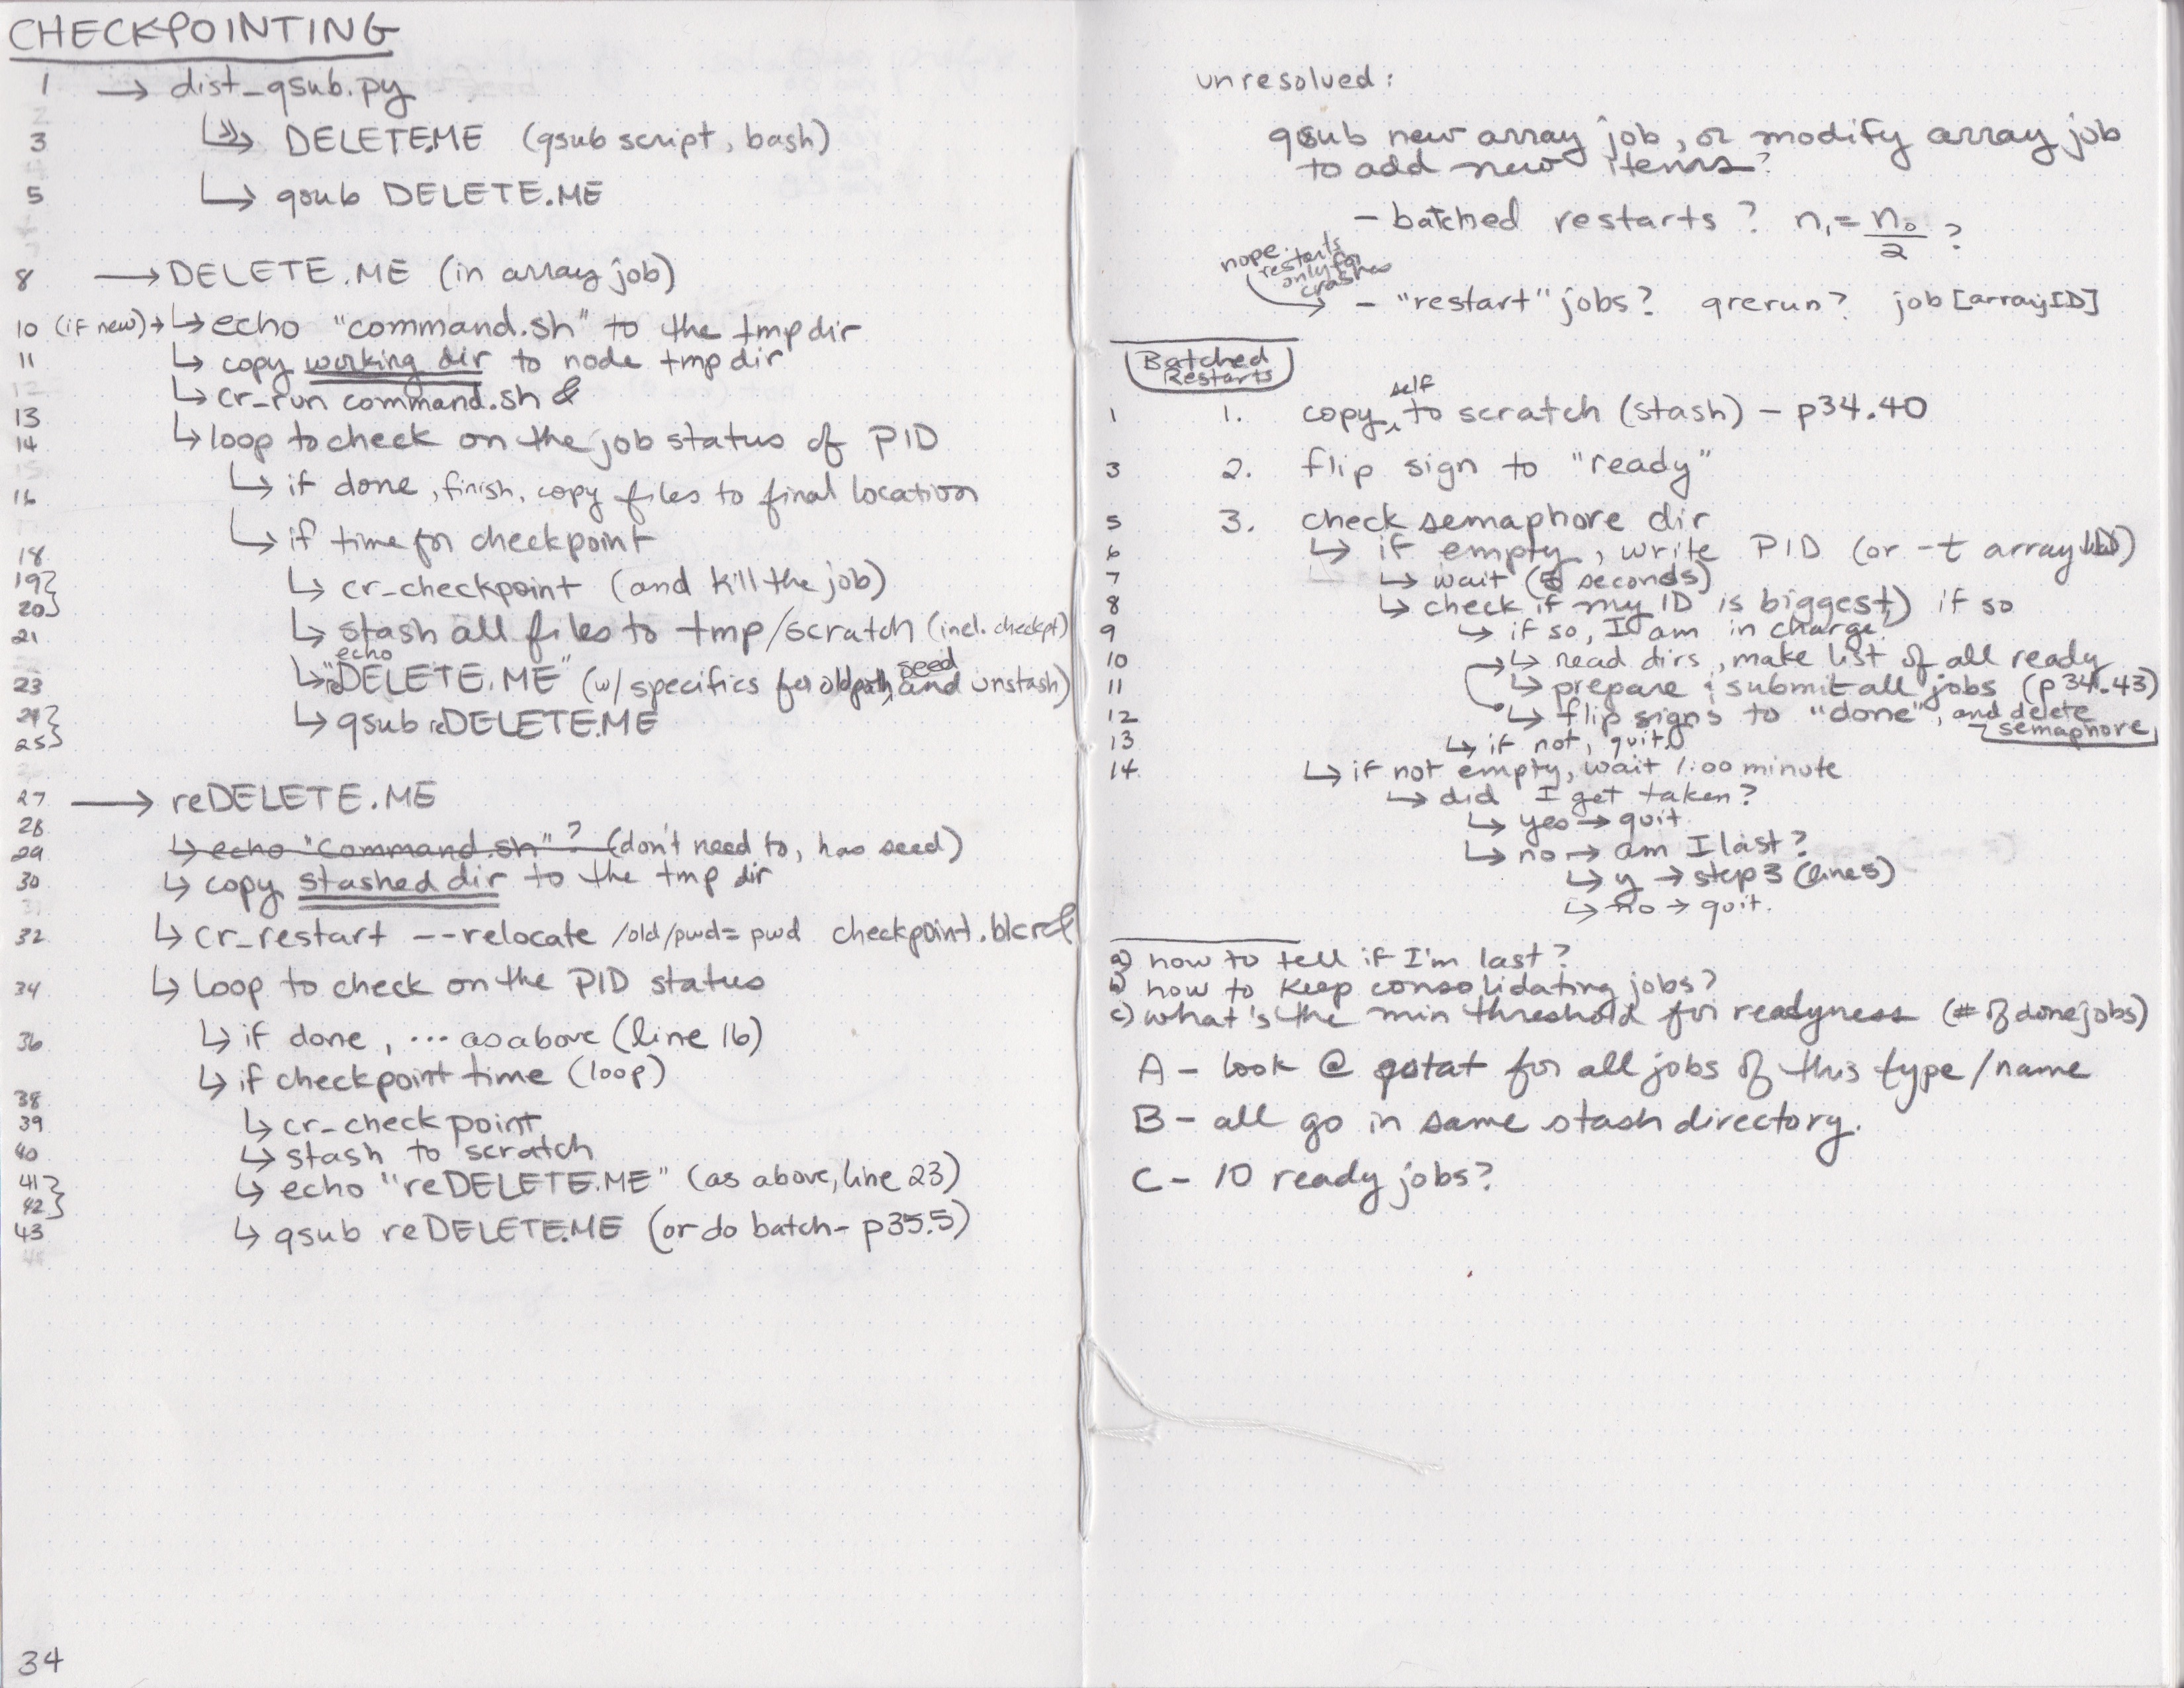 CHECKPOINTING
1 → dist_qsub.py
3 ↳ DELETE.ME (qsub script, bash)
5 ↳ qsub DELETE.ME
8 → DELETE.ME (in array job)
10 (if new) → ↳ echo "command.sh" to the tmp dir
11 ↳ copy working dir to node tmp dir
12 ↳ cr_run command.sh &
13
14 ↳ loop to check on the job status of PID
16 ↳ if done, finish, copy files to final location
18 ↳ if time for checkpoint
19} ↳ cr_checkpoint (and kill the job)
20}
21 ↳ stash all files to tmp/scratch (incl. checkpt)
echo seed
23 ↳ "reDELETE.ME" (w/ specifics for oldpath, and unstash)
24} ↳ qsub reDELETE.ME
25}
27 → reDELETE.ME
28
29 ↳ echo "command.sh"? (don't need to, has seed)
30 ↳ copy stashed dir to the tmp dir
32 ↳ cr_restart --relocate /old/pwd=pwd checkpoint.blcr &
34 ↳ loop to check on the PID status
36 ↳ if done, ... as above (line 16)
↳ if checkpoint time (loop)
38
39 ↳ cr_checkpoint
40 ↳ stash to scratch
41} ↳ echo "reDELETE.ME" (as above, line 23)
42}
43 ↳ qsub reDELETE.ME (or do batch - p35.5)
34
unresolved:
qsub new array job, or modify array job
to add new items?
- batched restarts? n₁ = n₀/2 ?
nope: restarts only for crashes
- "restart" jobs? qrerun? job[arrayID]
Batched
Restarts
self
1 1. copy ‸ to scratch (stash) - p34.40
3 2. flip sign to "ready"
5 3. check semaphore dir
6 ↳ if empty, write PID (or -t array ID)
7 ↳ wait (5 seconds)
8 ↳ check if my ID is biggest) if so
9 ↳ if so, I am in charge!
10 ↳ read dirs, make list of all ready
11 ↳ prepare & submit all jobs (p34.43)
12 ↳ flip signs to "done", and delete
semaphore
13 ↳ if not, quit
14 ↳ if not empty, wait 1:00 minute
↳ did I get taken?
↳ yes → quit
↳ no → am I last?
↳ y → step 3 (line 5)
↳ no → quit.
a) how to tell if I'm last?
b) how to keep consolidating jobs?
c) what's the min threshold for readyness (# of done jobs)
A - look @ qstat for all jobs of this type/name
B - all go in same stash directory.
C - 10 ready jobs?